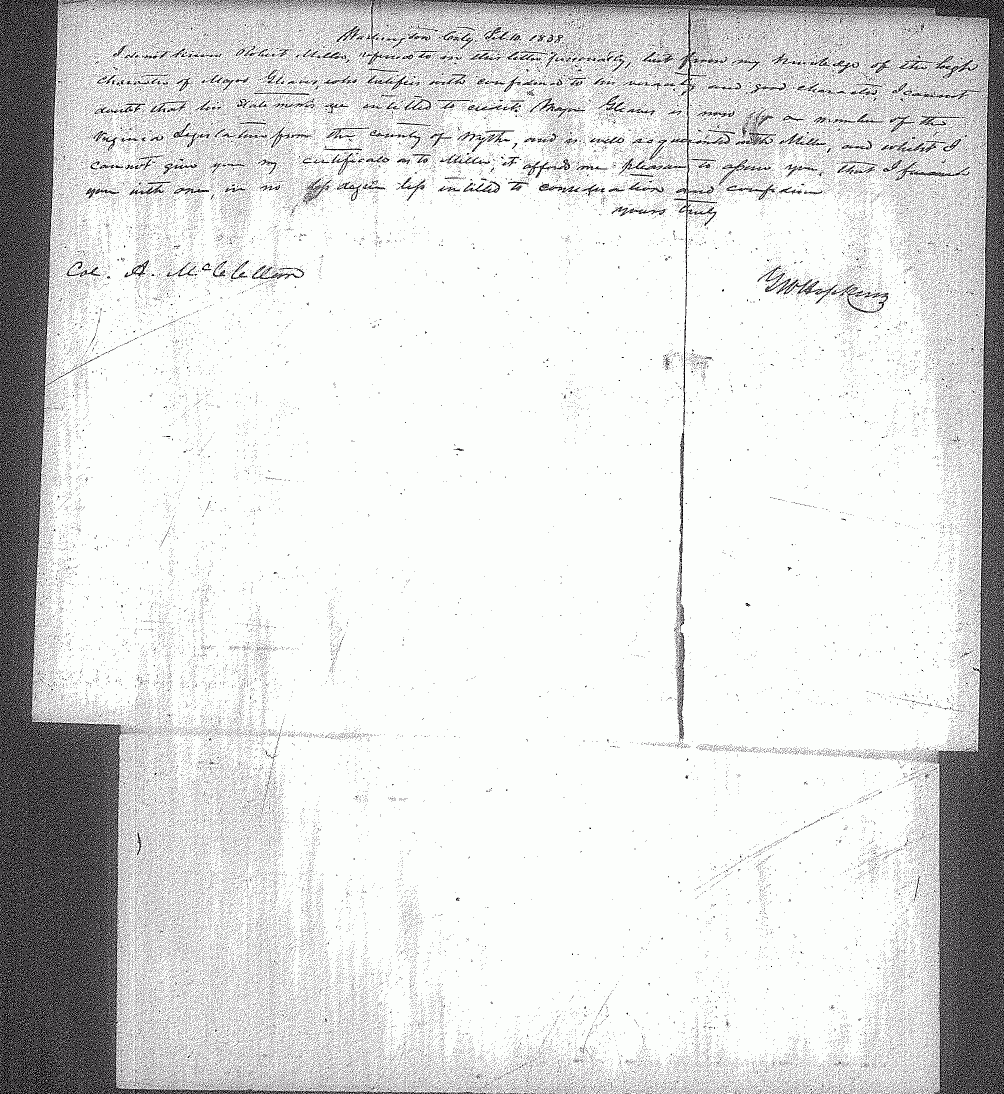 Washington City Feb. 10. 1838
I do not know Robert Miller, refered to in this letter personally, but from my knowledge of the high
character of Major Gleaves, who testifies with confidence to his veracity and good character, I cannot
doubt that his statements are intitled to credit. Major Gleaves is now a member of the
Virginia Legislature from the county of Wythe, and is well acquainted with Miller, and whilst I
cannot give you my certificate as to Miller, it affords me pleasure to assure you, that I furnish
you with one, in no less degree intitled to consideration and confidence
yours truly
Col. A. McClellan
GW Hopkins